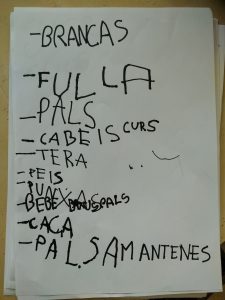 -BRANCAS
-FULLA
-PALS
-CABEIS CURS
-TERA
-PEIS
-PUNXAS
-BEBE
-CACA
-PAL.SAMANTENES